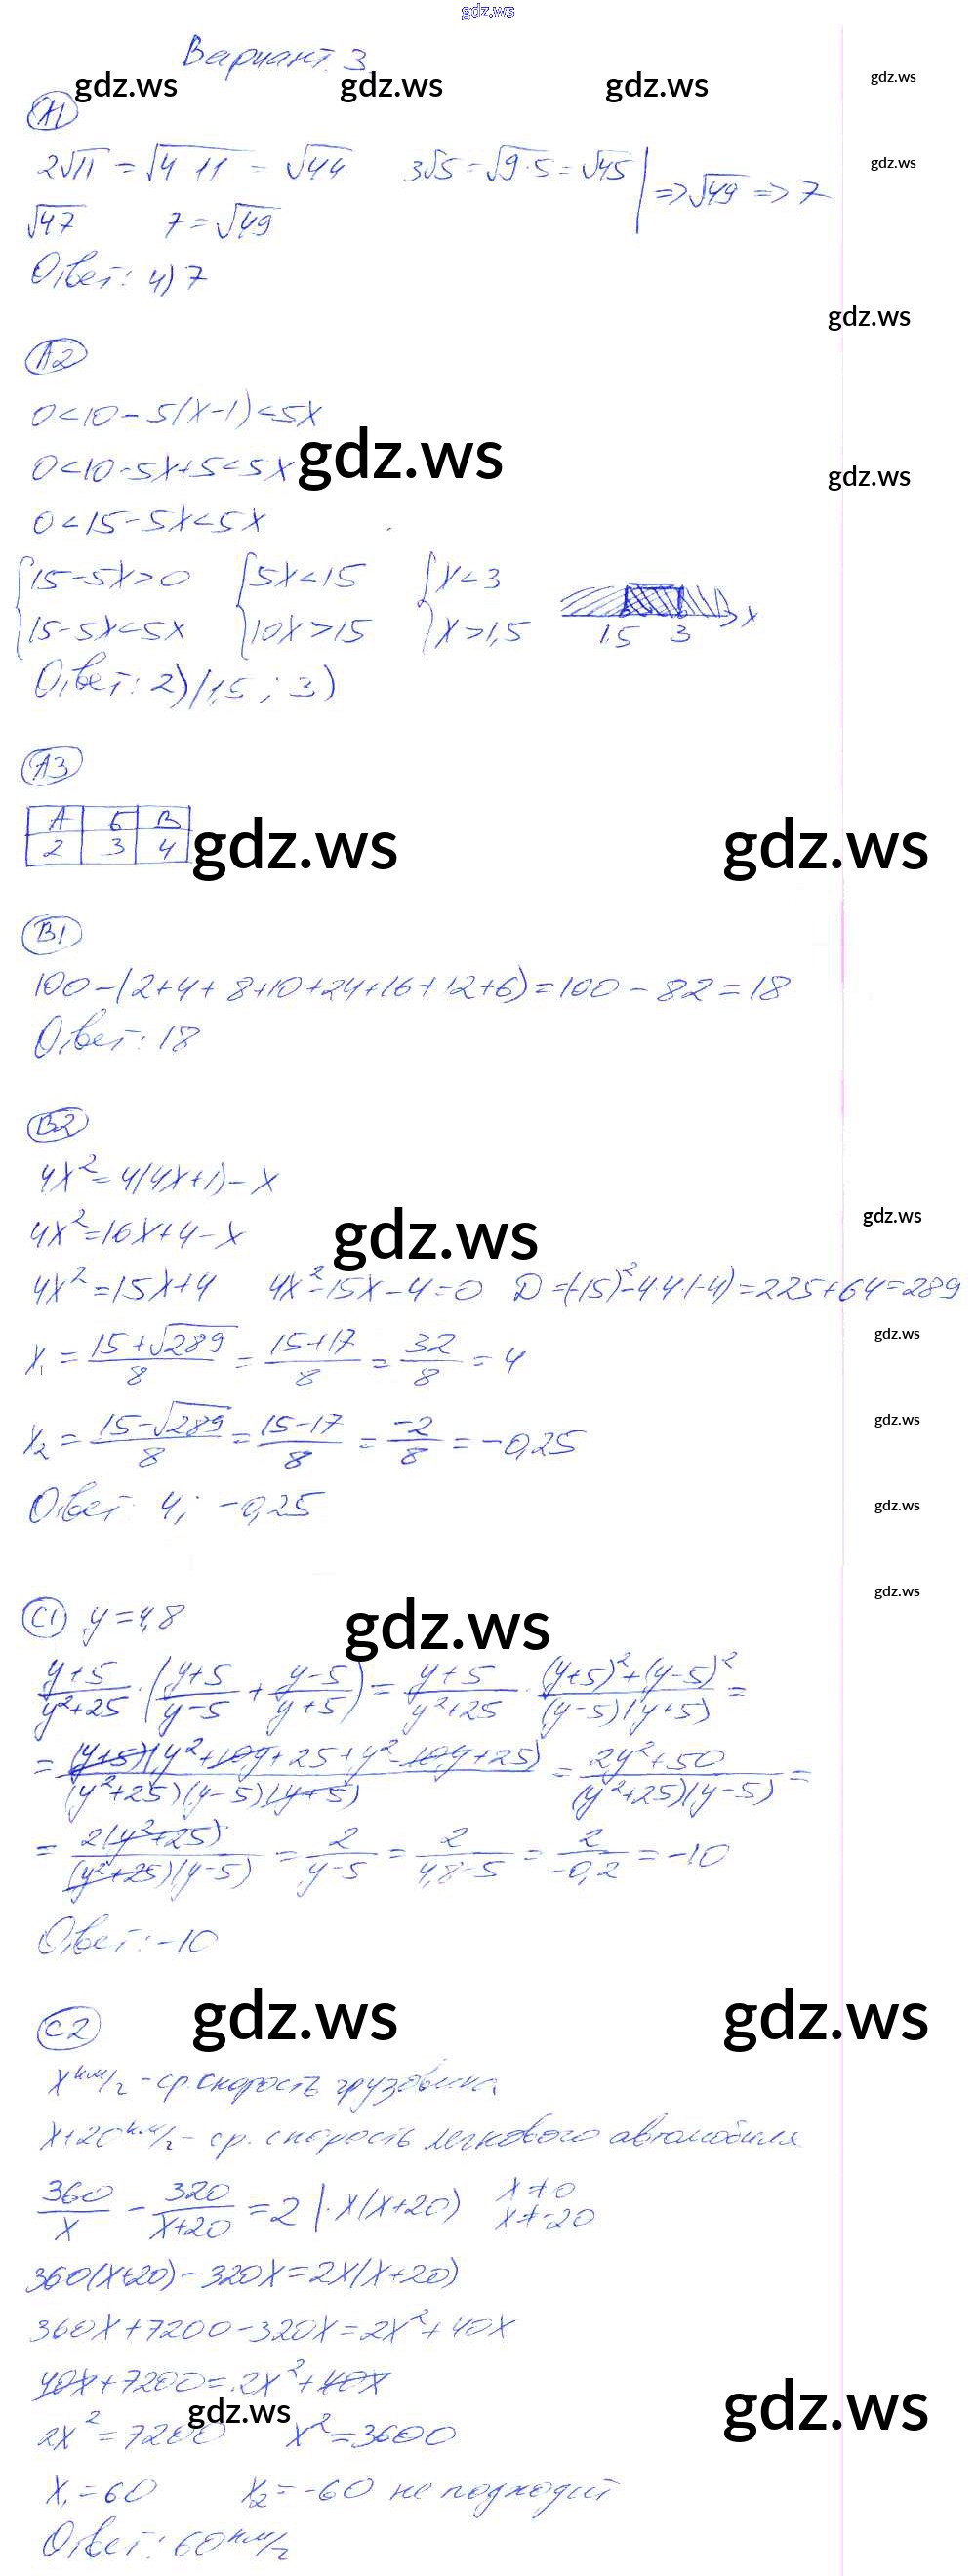 gdz.ws
Вариант 3
gdz.ws gdz.ws gdz.ws gdz.ws
А1
2√11 = √4 11 = √44 3√5 = √9·5 = √45 gdz.ws
=> √49 => 7
√47 7 = √49
Ответ: 4) 7
gdz.ws
А2
0<10-5(x-1)<5x
gdz.ws
0<10-5x+5<5x gdz.ws
0<15-5x<5x
{15-5x>0 {5x<15 {x<3
15-5x<5x 10x>15 x>1,5 1,5 3 x
Ответ: 2) (1,5 ; 3)
А3
А Б В
2 3 4
gdz.ws gdz.ws
В1
100-(2+4+8+10+24+16+12+6)=100-82=18
Ответ: 18
В2
4x²=4(4x+1)-x
gdz.ws gdz.ws
4x²=16x+4-x
4x²=15x+4 4x²-15x-4=0 D=(-15)²-4·4·(-4)=225+64=289
gdz.ws
x₁ = (15+√289)/8 = (15+17)/8 = 32/8 = 4
gdz.ws
x₂ = (15-√289)/8 = (15-17)/8 = -2/8 = -0,25
Ответ: 4; -0,25 gdz.ws
gdz.ws
С1 y=4,8 gdz.ws
(y+5)/(y²+25) · ((y+5)/(y-5) + (y-5)/(y+5)) = (y+5)/(y²+25) · ((y+5)²+(y-5)²)/((y-5)(y+5)) =
= ((y+5)(y²+10y+25+y²-10y+25))/((y²+25)(y-5)(y+5)) = (2y²+50)/((y²+25)(y-5)) =
= 2(y²+25)/((y²+25)(y-5)) = 2/(y-5) = 2/(4,8-5) = 2/(-0,2) = -10
Ответ: -10
gdz.ws gdz.ws
С2
x км/г - ср. скорость грузовика
x+20 км/г - ср. скорость легкового автомобиля
360/x - 320/(x+20) = 2 |·x(x+20) x≠0
x≠-20
360(x+20)-320x=2x(x+20)
360x+7200-320x=2x²+40x
40x+7200=2x²+40x
gdz.ws gdz.ws
2x²=7200 x²=3600
x₁=60 x₂=-60 не подходит
Ответ: 60 км/г